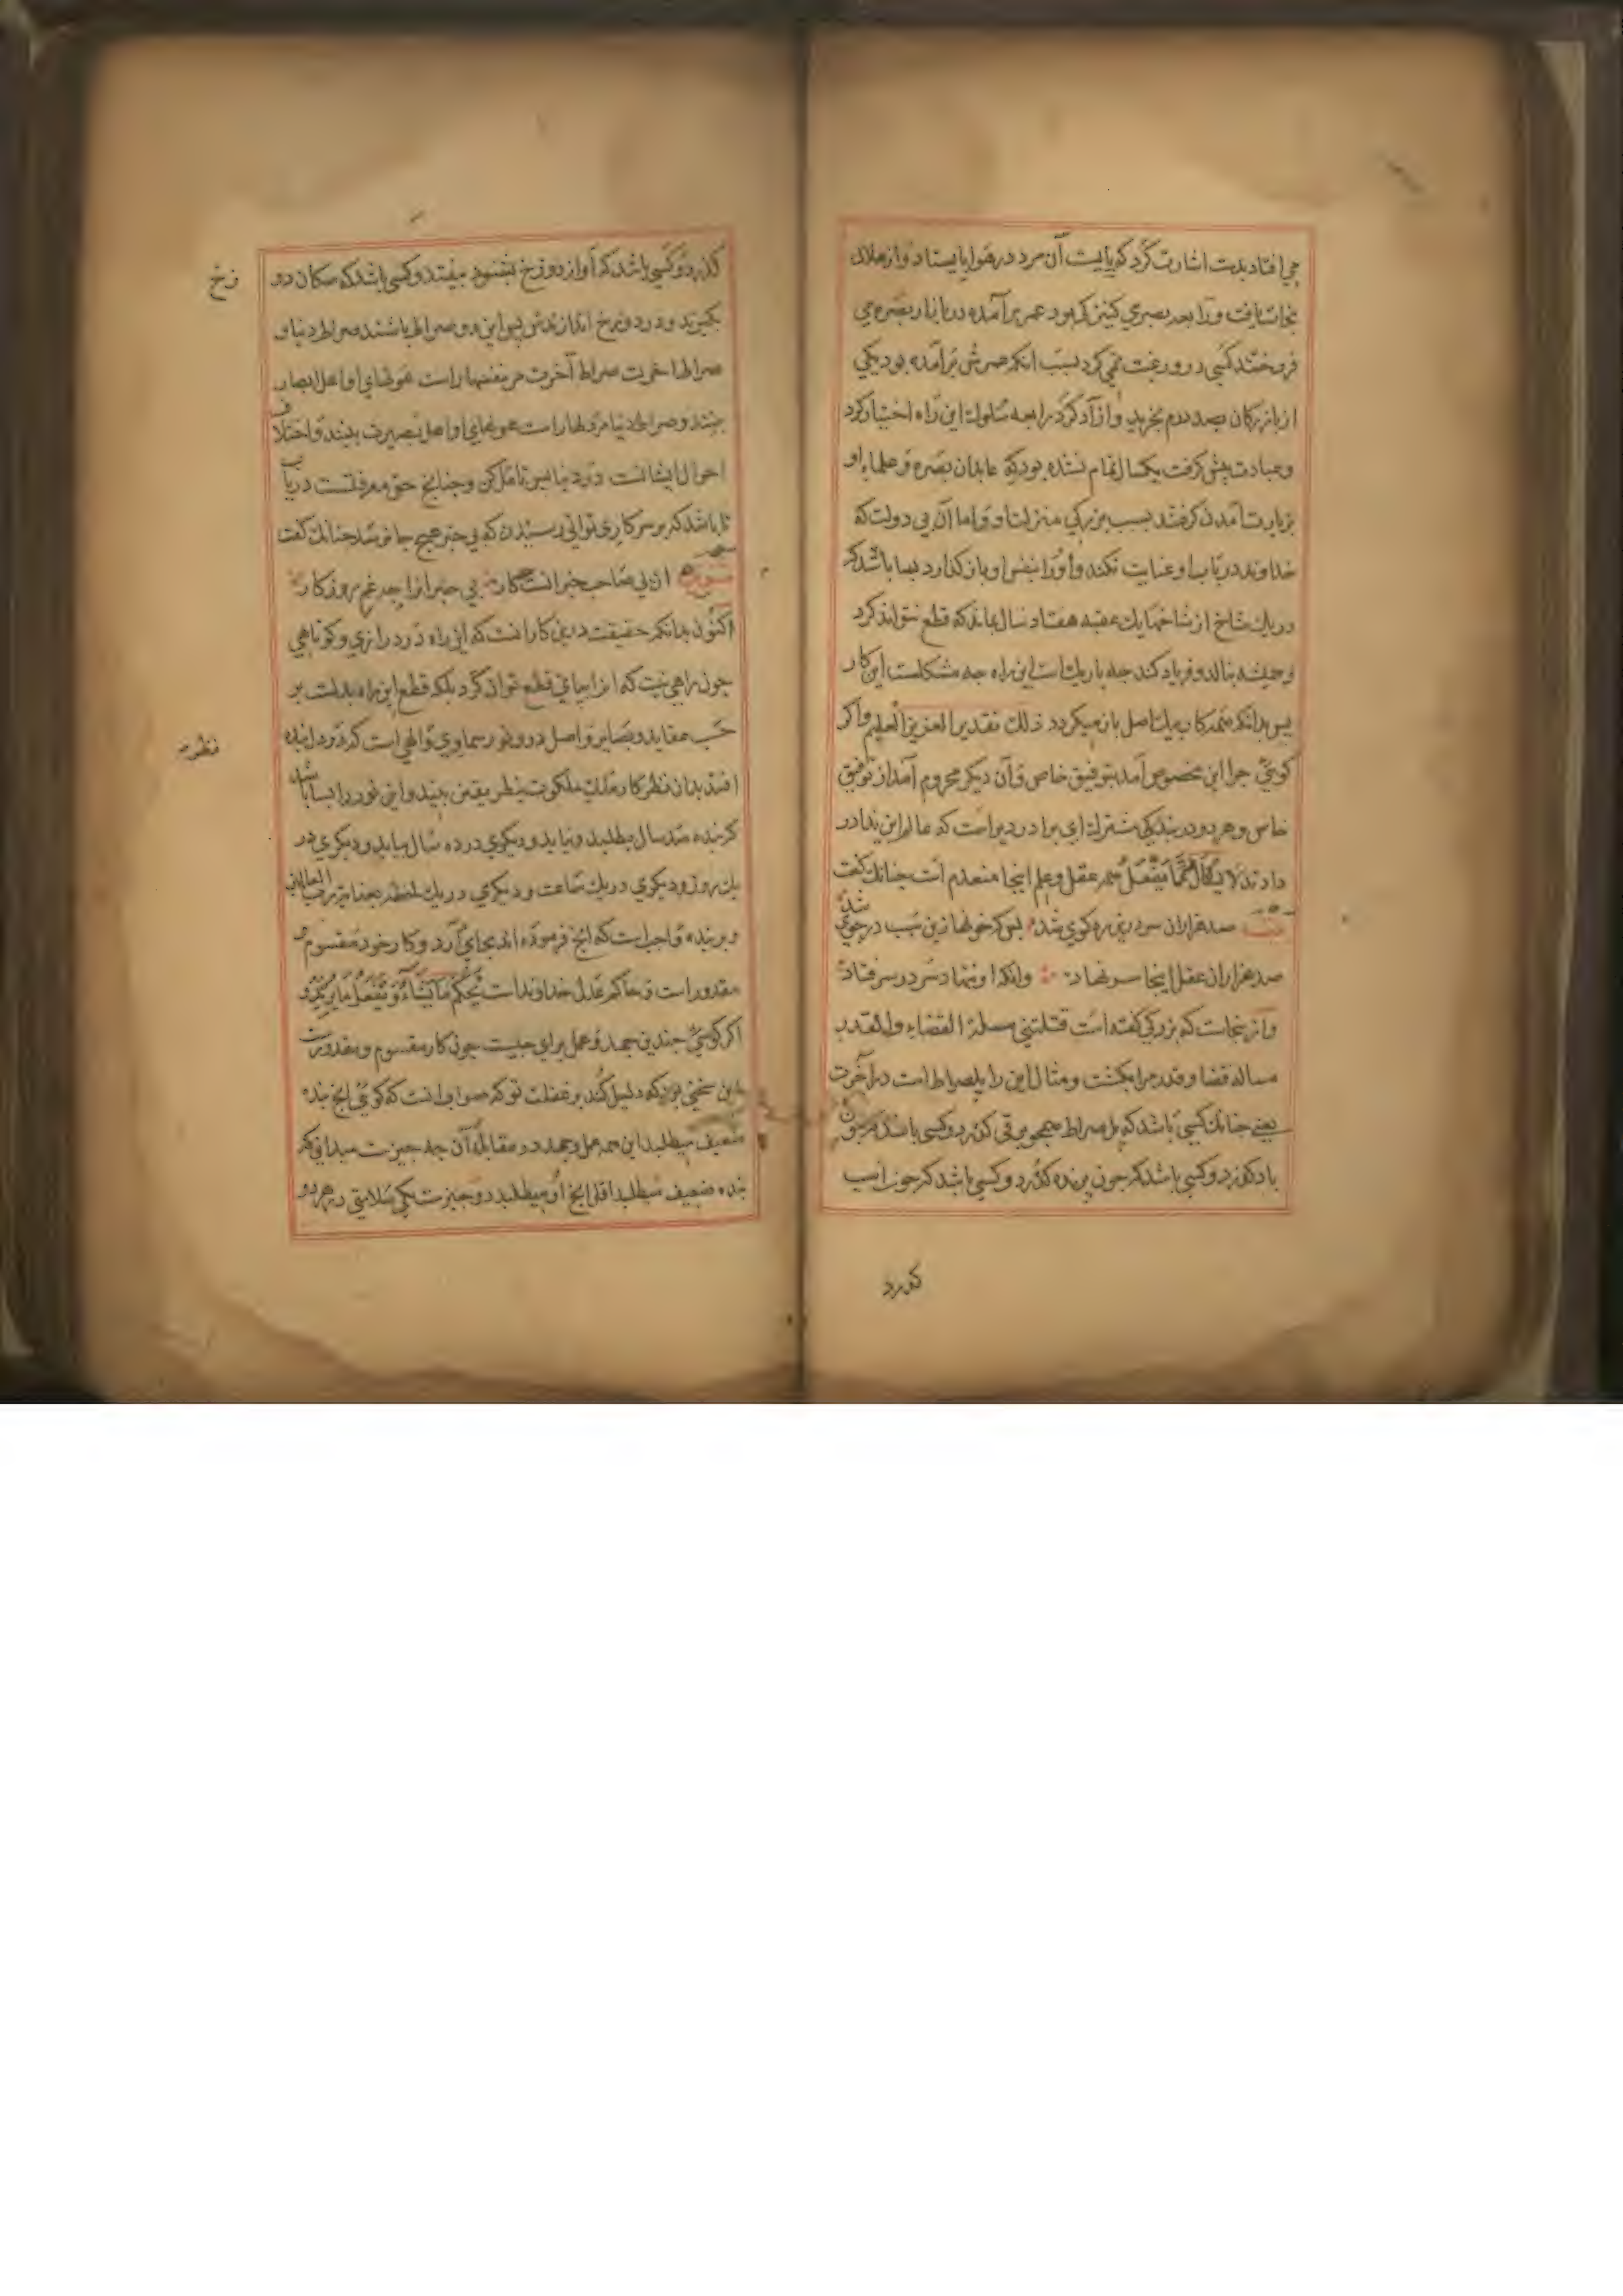 می افتاد بدست اشارت کرد که بایست آن مرد در هوا بایستاد و از هلاک
نجات یافت و رابعه بصری کنیزک بود عمر برآمده در بازار بصره می
فروختند کسی درو رغبت نمی کرد بسبب انکه عمرش برآمده بود یکی
از بازرکان بصد درم بخرید و ازآد کرد رابعه سلوك این راه اختیار کرد
و عبادت پیش کرفت یکسال تمام نشده بود که عابدان بصره و علماء او
بزیارت آمدن کرفتند بسبب بزرکی منزلت او و اما آن بی دولت که
خداوند در باب او عنایت نکند و اورا بنفس او باز کذارد بسا باشد که
در یك شاخ از شاخهای یك عقبه هفتاد سال بماند که قطع نتواند کرد
و همیشه بنالد و فریاد کند جه باریك است این راه جه مشکلست این کار
بس بدانکه همه کار بیك اصل باز میکردد ذلك تقدیر العزیز العلیم و اکر
کوئی جرا این مخصوص آمد بتوفیق خاص و آن دیکر محروم آمد از توفیق
خاص و هر دو در بندکی مشترك ای برادر دیراست که عالم این ندا در
دادند لا یسأل عما یفعل همه عقل و علم اینجا منعدم است جنانك کفت
بیت صد هزاران سر درین ره کوی شد بس که خونها زین سبب در جوی شد
صد هزاران عقل اینجا سر نهاد وانکه او ننهاد سر در سر فتاد
و از ینجات که بزرکی کفته است قتلتنی مسلة القضاء و القدر
مساله قضا و قدر مرا بکشت و مثال این راه پلصراط است در آخرت
یعنی جنانك کسی باشد که بل صراط همجو برقی کذرد و کسی باشد که جون
باد کذرد و کسی باشد که جون پرنده کذرد و کسی باشد که جون اسب
کذرد
کذرد و کسی باشد که آواز دوزخ بشنود بیفتد و کسی باشد که سکان دو
زخ
بکیرند و در دوزخ اندازندش پس این دو صراط باشند صراط دنیا و
صراط اخرت صراط آخرت مر نفسها راست هولهای او اهل ابصار
بینند و صراط دنیا مر دلها راست هولهای او اهل بصیرت بینند و اختلاف
احوال ایشانست در دنیا بس تامل کن و جنانج حق معرفتست دریاب
تا باشد که بر سر کاری توانی رسیدن که بی خبر هیج جا نرسد جنانك کفت
ان دل صاحب خبرانست کار بی خبرانرا جه غم روزکار
اکنون بدانکه حقیقت درین کار انست که این راه در درازی و کوتاهی
جون راهی نیست که انرا بپای قطع توان کرد بلکه قطع این راه بدلست بر
حسب عقاید و بصایر و اصل درو نور سماوی و الهی است که در دل بنده
نظره
افتد بدان نظر کار ملك و ملکوت بنظر یقین بیند و این نور را بسا باشد
که بنده صد سال بطلبد و نیابد و دیکری در ده سال بیابد و دیکری در
یك روز و دیکری در یك ساعت و دیکری در یك لحظه بعنایت رب العالمین
و بر بنده واجب است که انج فرموده اند بجای آرد و کار خود مقسوم و
مقدور است و حاکم عدل خداوند است یحکم ما یشاء و یفعل ما یرید و
اکر کوئی جندین جهد و عمل برای جیست جون کار مقسوم و مقدورست
این سخنی بود که دلیل کند بر غفلت تو که صواب انست که کوئی انج بنده
ضعیف میطلبد این همه عمل و جهد در مقابله آن جه جیزست میدانی که
بنده ضعیف میطلبد اقل انج او میطلبد دو جیزست یکی سلامتی در هر دو